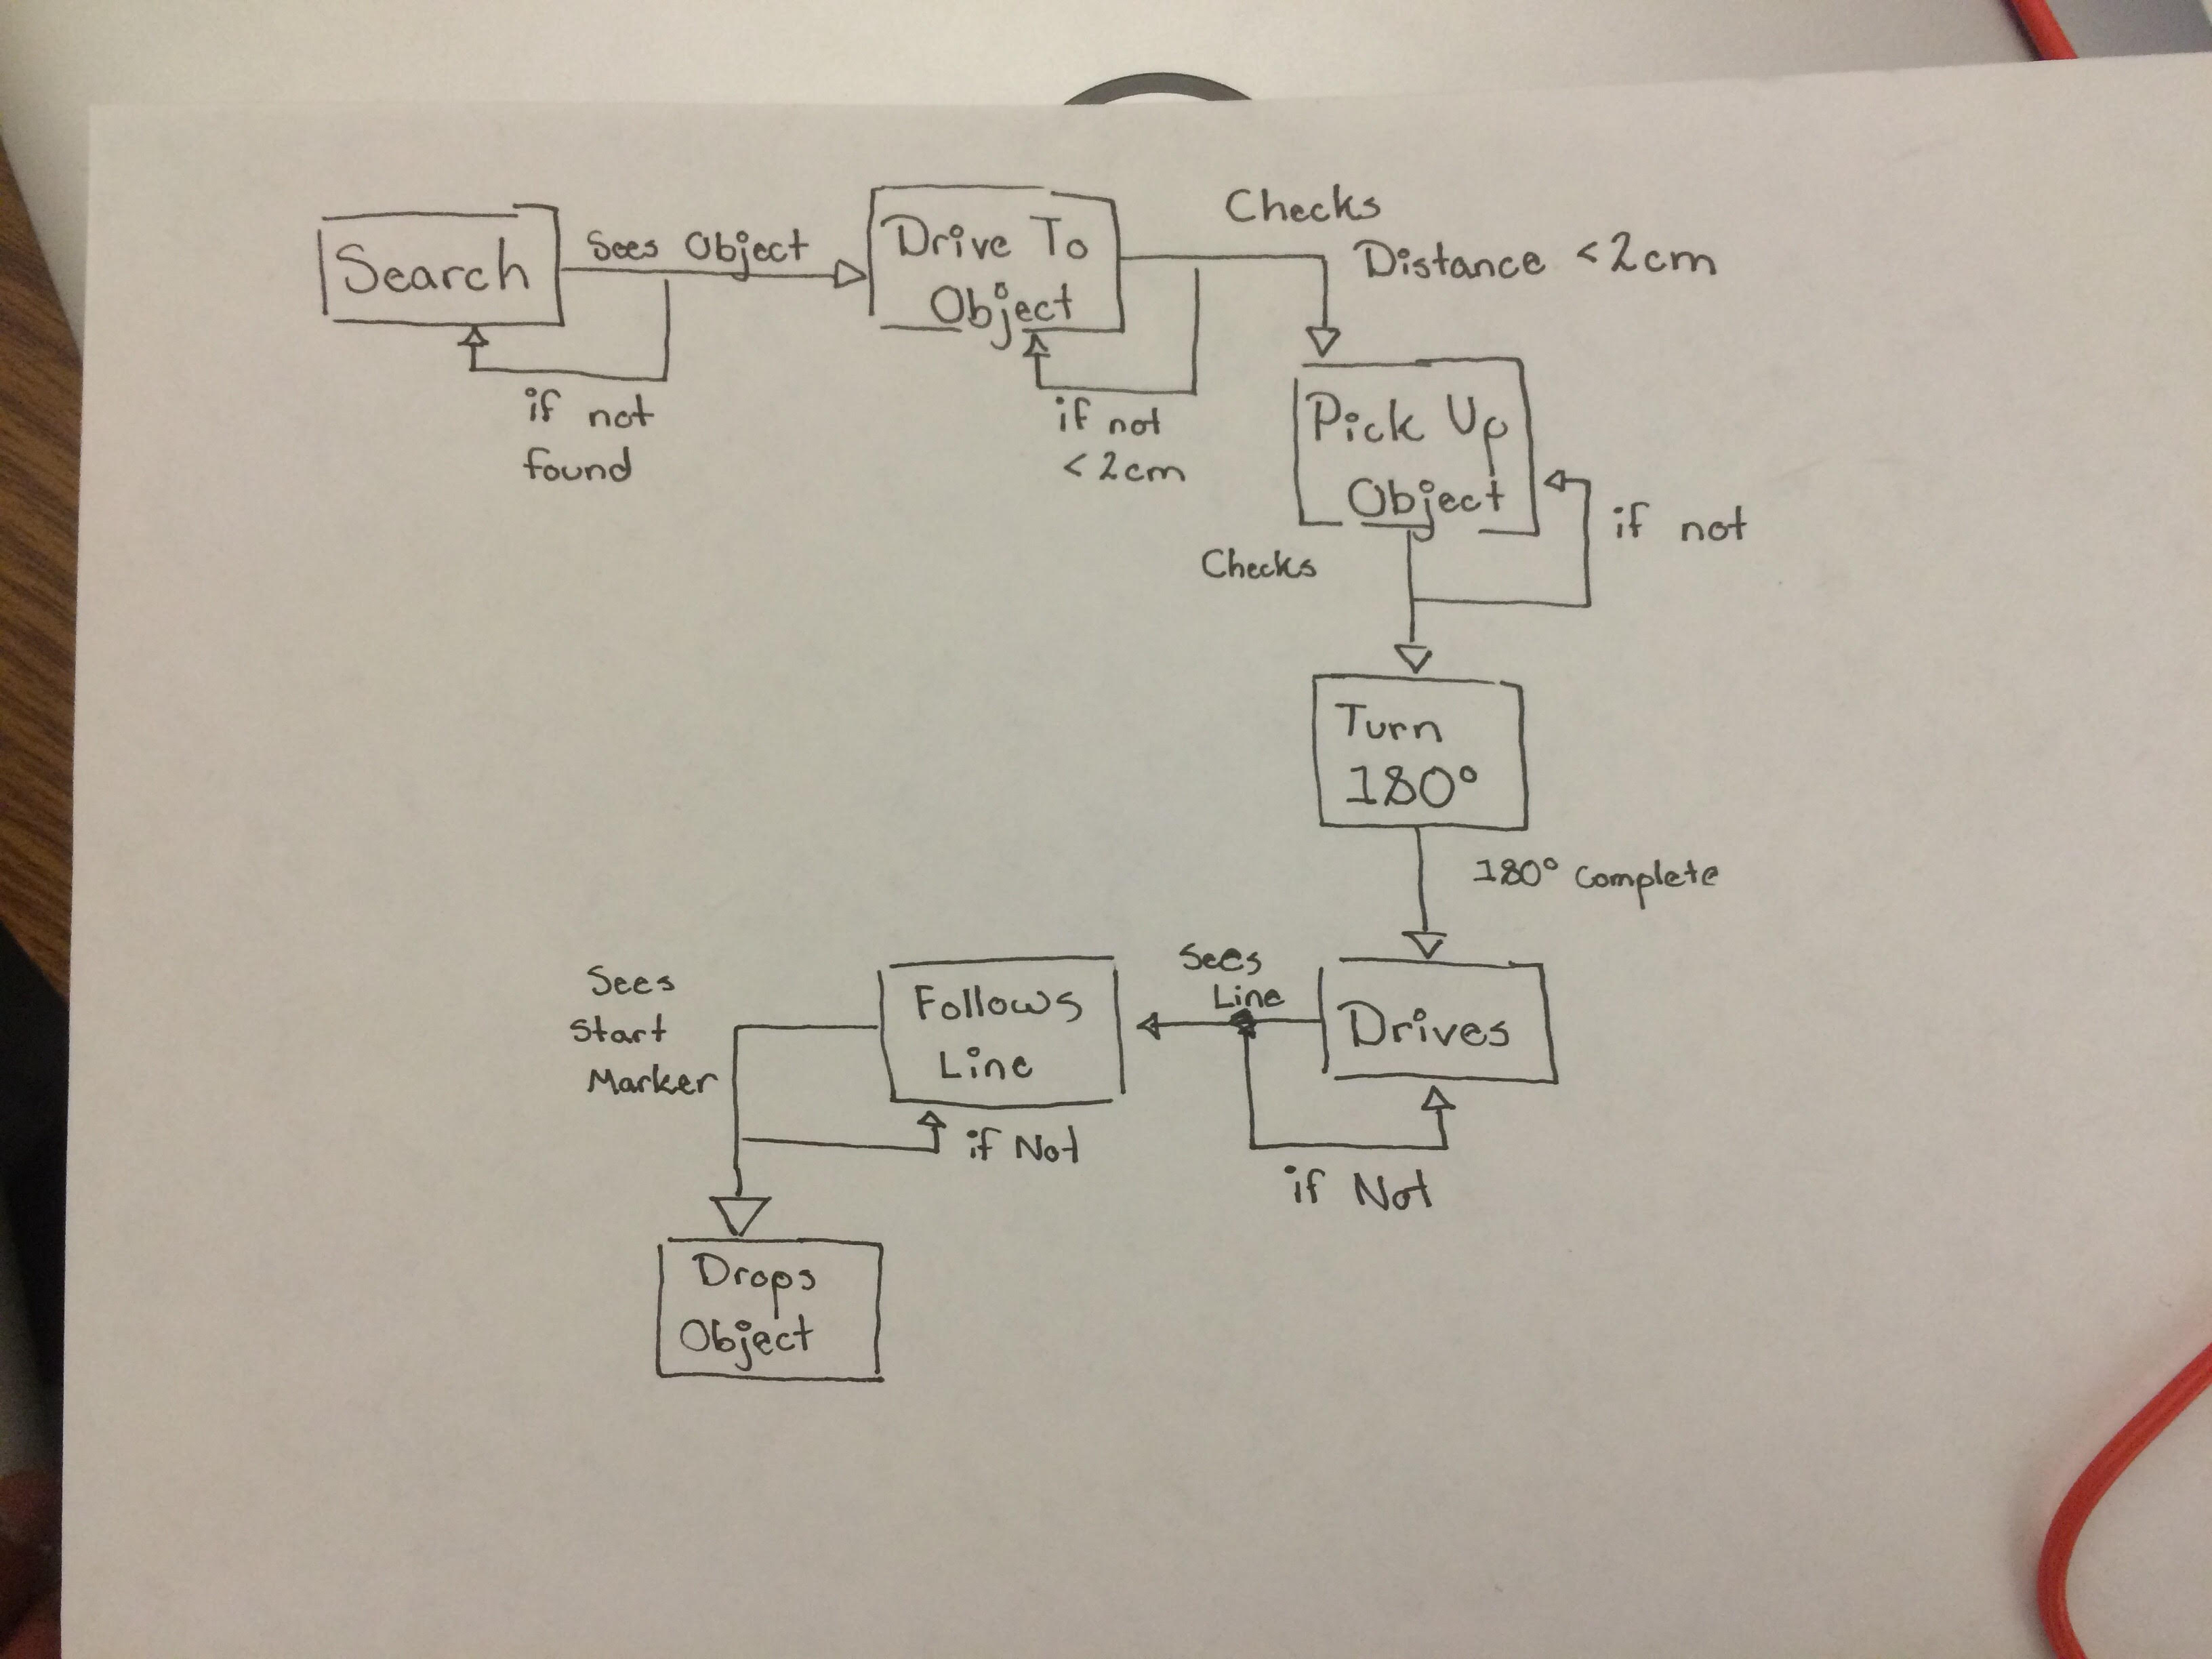 Search
Sees Object
if not
found
Drive To
Object
if not
<2cm
Checks
Distance <2cm
Pick Up
Object
if not
Checks
Turn
180°
180° Complete
Drives
Sees
Line
if Not
Follows
Line
if Not
Sees
Start
Marker
Drops
Object